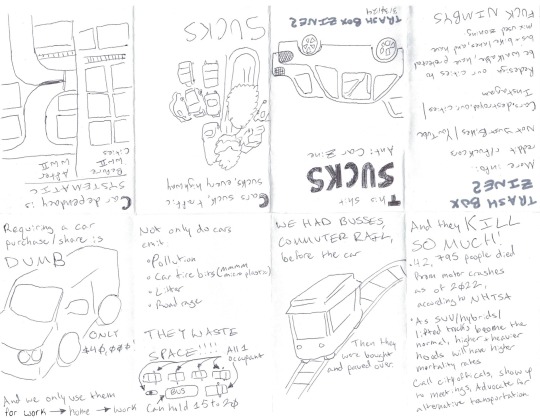 This shit
SUCKS
Anti Car Zine
TRASH BOX ZINES
3/4/24
Requiring a car
purchase/share is
DUMB
ONLY
$40,000!
And we only use them
for work → home → work
Not only do cars
emit:
• Pollution
• Car tire bits (mmmm microplastic)
• Litter
• Road rage
THEY WASTE
SPACE!!!!
All 1
occupant
BUS
Can hold 15 to 20
WE HAD BUSSES,
COMMUTER RAIL,
before the car
Then they
were bought
and paved over
And they KILL
SO MUCH!
• 42,795 people died
from motor crashes
as of 2022,
according to NHTSA
• As SUV/hybrids/
lifted trucks become the
normal, higher + heavier
hoods will have higher
mortality rates
Call city officals, show up
to meetings, Advocate for
alternative transportation
TRASH BOX
ZINES
More info:
reddit r/fuckcars
Not Just Bikes / YouTube
Cars.destroyed.our.cities /
Instagram
Redesign our cities to
be walkable, have protected
bus + bike lanes, and have
mixed used zoning
FUCK NIMBYS
Cars suck traffic
sucks, every highway
SUCKS
Car dependency is
SYSTEMATIC
Before
WWII
After
WWII
Cities